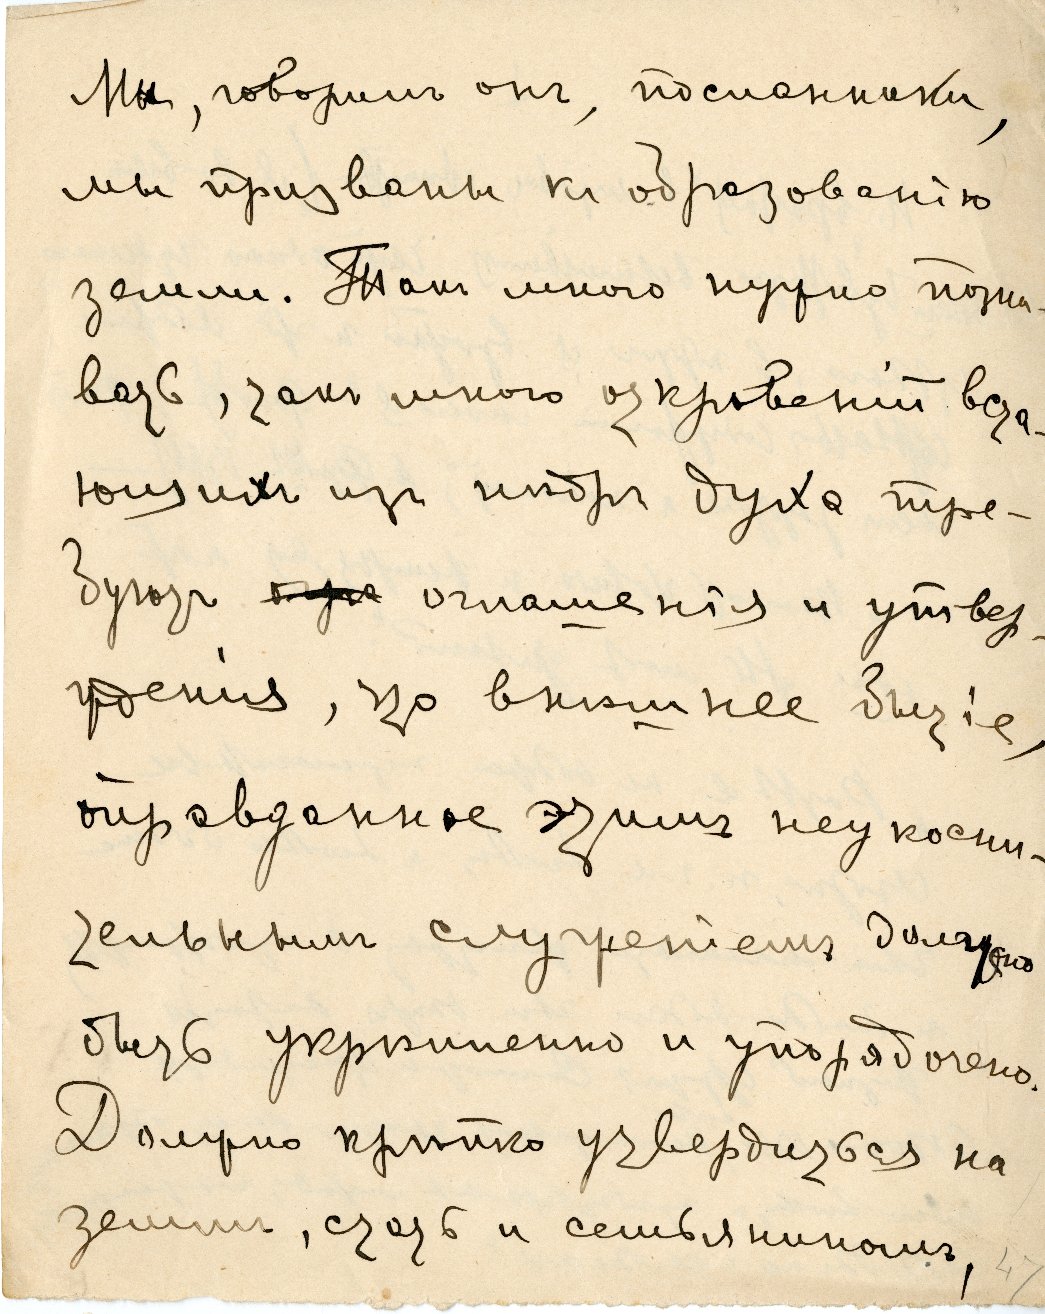 Мы, говоримъ онъ, посланники,
мы призваны къ образованію
земли. Такъ много нужно позна-
вать, такъ много откровеній вста-
ющихъ изъ нѣдръ духа тре-
буютъ оглашенія и утвер-
жденія, что внѣшнее бытіе,
оправданное этимъ неукосни-
тельнымъ служеніемъ должно
быть укрѣплено и упорядочено.
Должно крѣпко утвердиться на
землѣ, стать и семьяниномъ,
47